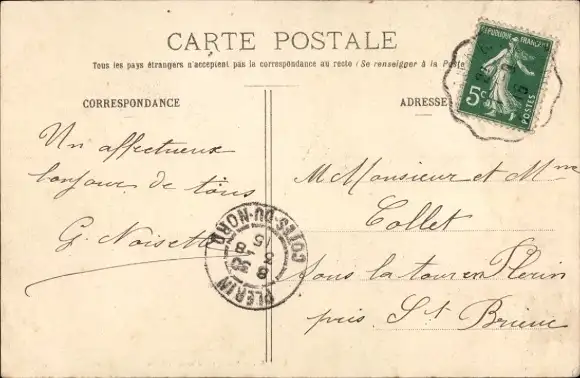 CARTE POSTALE
Tous les pays étrangers n'acceptent pas la correspondance au recto (Se renseigner à la Poste
CORRESPONDANCE
ADRESSE
REPUBLIQUE FRANÇAISE
5c
POSTES
Un affectueux
bonjour de tous
G. Noisette
M Monsieur et Mme
Collet
Sous la tour en Plérin
près St Brieuc
PLERIN
COTES-DU-NORD